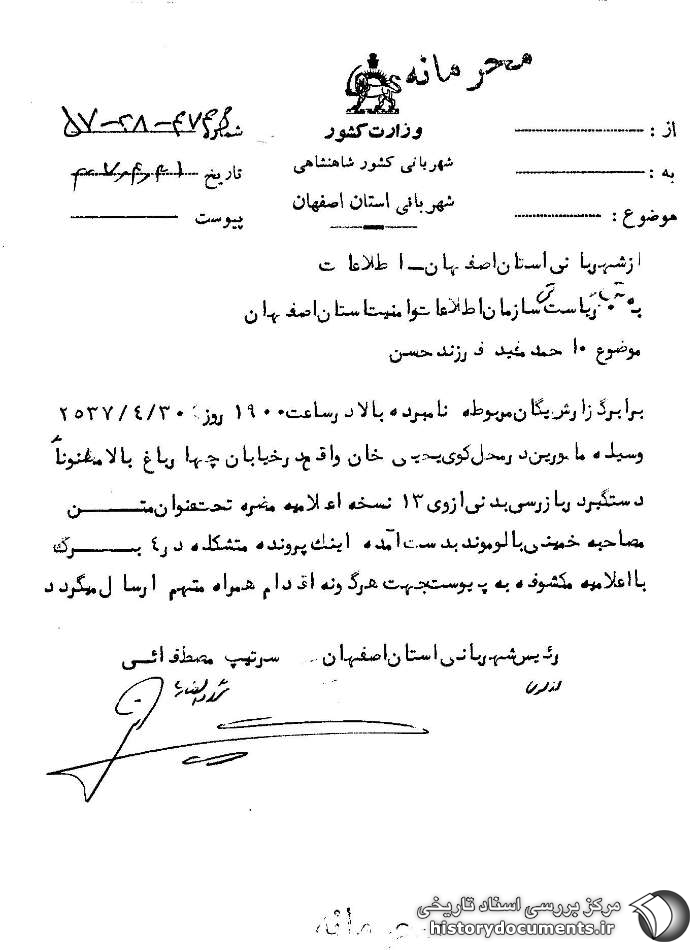 محرمانه
وزارت کشور
شهربانی کشور شاهنشاهی
شهربانی استان اصفهان
از :
به :
موضوع :
شماره
تاریخ
پیوست
از شهربانی استان اصفهان ــ اطلاعات
به ریاست سازمان اطلاعات و امنیت استان اصفهان
موضوع ۰ احمد مفید فرزند حسن
برابر گزارش یگان مربوطه نامبرده بالا در ساعت ۱۹۰۰ روز ۲۵۳۷/۴/۳۰
وسیله مامورین در محل کوی یحیی خان واقع در خیابان چهارباغ بالا مظنوناً
دستگیر در بازرسی بدنی از وی ۱۳ نسخه اعلامیه مضره تحت عنوان متن
مصاحبه خمینی با لوموند بدست آمده اینک پرونده متشکله در ۴ برگ
با اعلامیه مکشوفه به پیوست جهت هرگونه اقدام همراه متهم ارسال میگردد
رئیس شهربانی استان اصفهان سرتیپ مصطفائی
مرکز بررسی اسناد تاریخی
historydocuments.ir